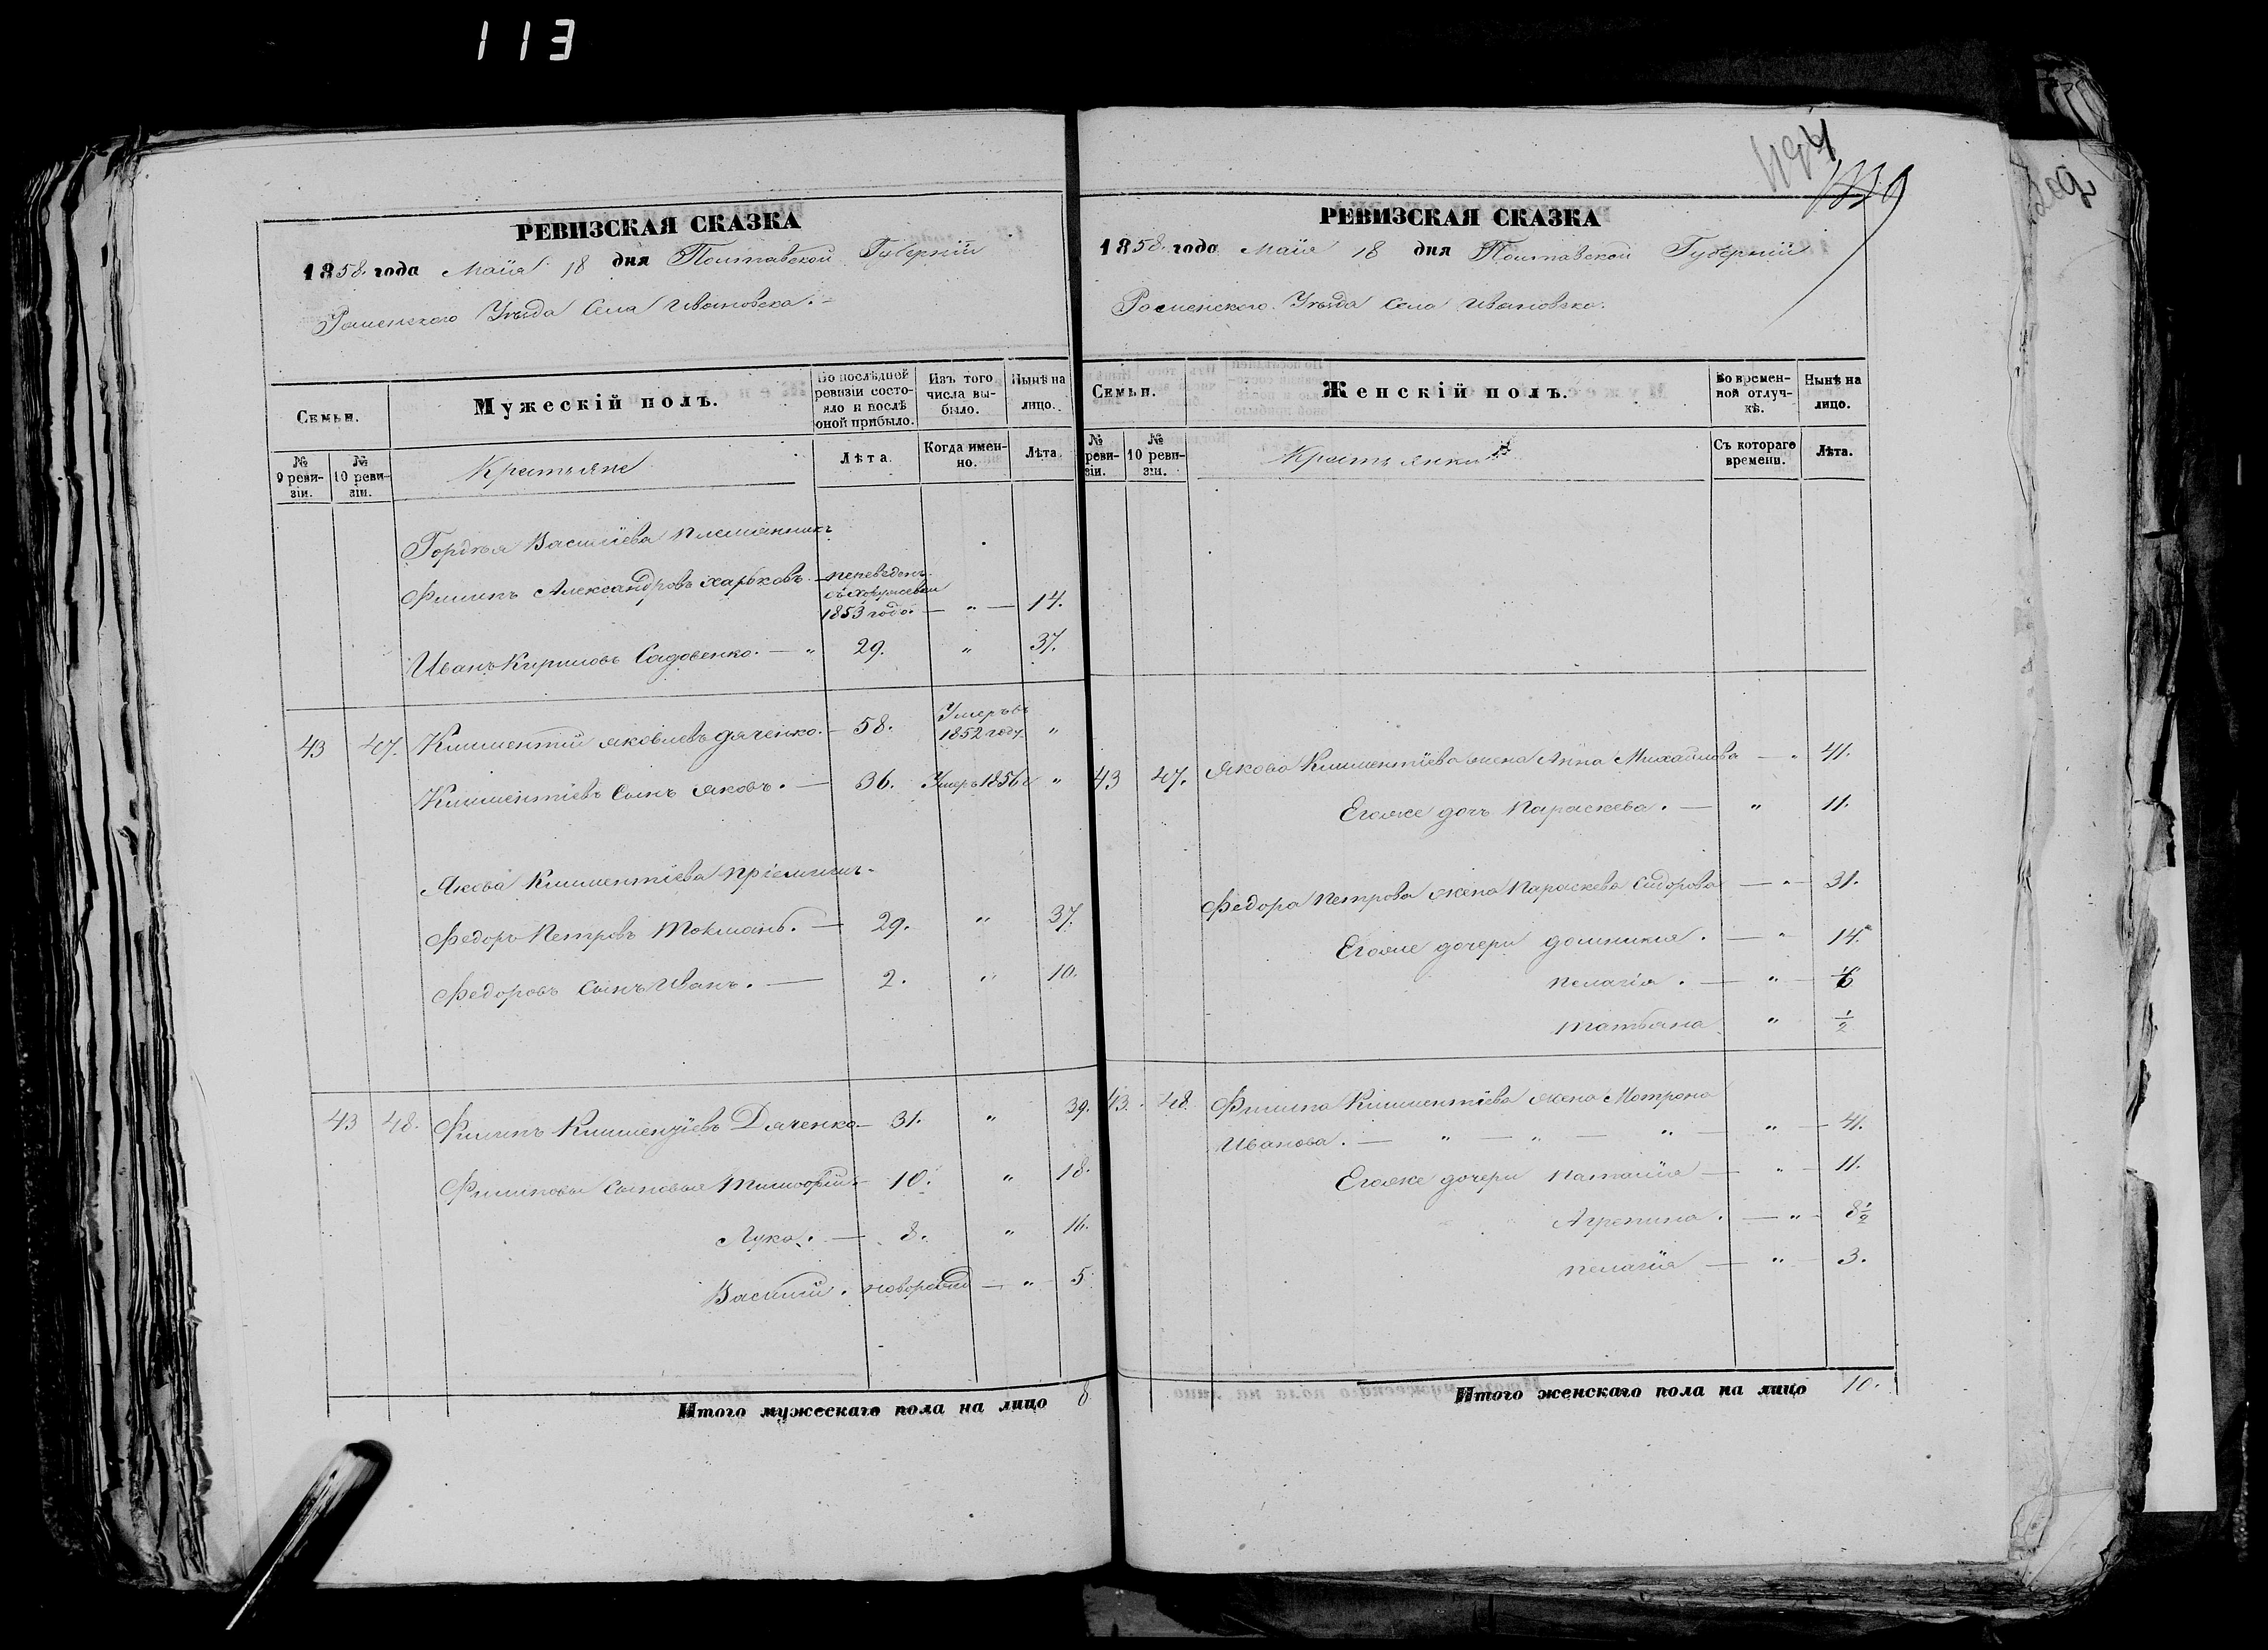 113
1194
1339
РЕВИЗСКАЯ СКАЗКА
1858. года Маія 18 дня Полтавской Губерніи
Роменского Уѣзда Села Ивановска.
Семьи.
Мужескій полъ.
Во послѣдней ревизіи состояло и послѣ оной прибыло.
Изъ того числа выбыло.
Нынѣ на лицо.
№ 9 ревизіи.
№ 10 ревизіи.
Крестьяне
Лѣта.
Когда именно.
Лѣта.
Гордѣя Васильева племянникъ
Филипъ Александровъ Харьковъ. — переведенъ
1853 года. — " — 14.
Иванъ Кириловъ Садовенко. — " 29. " 37.
43 47. Климентій Яковлевъ Дяченко. — 58. Умеръ въ 1852 году "
Климентіевъ сынъ Яковъ. — 36. Умеръ 1856 "
Якова Климентіева пріемишъ
Федоръ Петровъ Токмань. — 29. " 37.
Федоровъ сынъ Иванъ. — 2. " 10.
43 48. Филипъ Климентіевъ Дяченко — 31. " 39.
Филиповы сыновья Тимофій 10. " 18.
Лука. — 8. " 16.
Василій. новорожд — " 5
Итого мужескаго пола на лицо 8
РЕВИЗСКАЯ СКАЗКА
1858. года Маія 18 дня Полтавской Губерніи
Роменского Уѣзда Села Ивановска.
Семьи.
Женскій полъ.
Во временной отлучкѣ.
Нынѣ на лицо.
№ ревизіи.
№ 10 ревизіи.
Крестьянки
Съ котораго времени.
Лѣта.
43 47. Якова Климентіева жена Анна Михайлова — " 41.
Егоже дочь Параскева. — " 11.
Федора Петрова жена Параскева Сидорова — " — 31.
Егоже дочери Домникия. — " 14.
Пелагія. — " —
Татьяна " ½
43. 48. Филипа Климентіева жена Мотрона
Иванова. — " — " — " — " — 41.
Егоже дочери Наталія — " — 11.
Агрепина. — " — 8½
Пелагія — " — 3.
Итого женскаго пола на лицо 10.